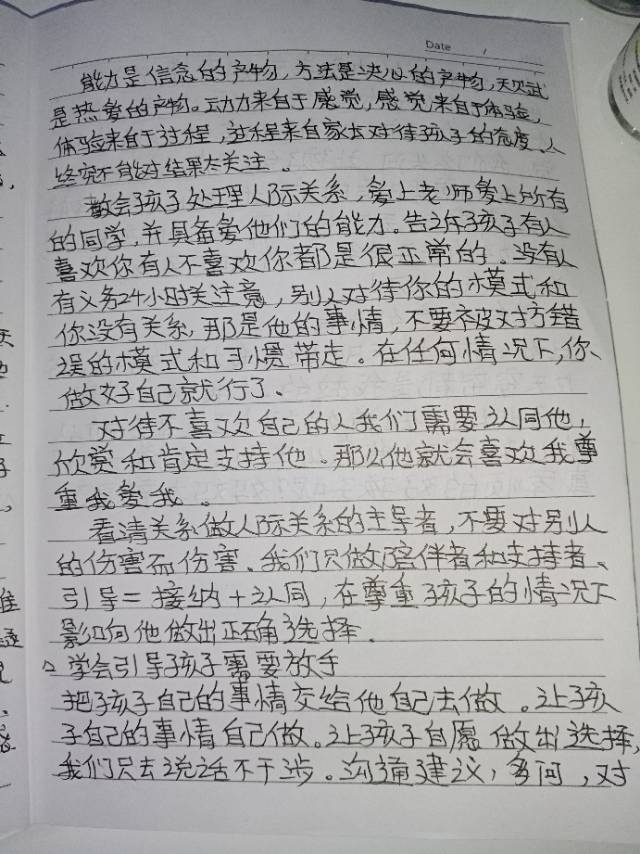 Date /
能力是信念的产物，方法是决心的产物，天赋
是热爱的产物。动力来自于感觉，感觉来自于体验，
体验来自于过程，过程来自家长对待孩子的态度。人
终究不能对结果太关注。
教会孩子处理人际关系，爱上老师爱上所有
的同学，并具备爱他们的能力。告孩子有人
喜欢你有人不喜欢你都是很正常的。没有人
有义务24小时关注意，别人对待你的模式和
你没有关系，那是他的事情，不要被对方错
误的模式和习惯带走。在任何情况下，你、
做好自己就行了、
对待不喜欢自己的人我们需要认同他，
欣赏和肯定支持他。那么他就会喜欢我尊
重我爱我。
看清关系做人际关系的主导者，不要对别人
的伤害而伤害。我们只做陪伴者和支持者、
引导=接纳+认同，在尊重孩子的情况下
影响他做出正确选择.
2 学会引导孩子需要放手
把孩子自己的事情交给他自己去做。让孩
子自己的事情自己做。让孩子自愿做出选择，
我们只去说话不干涉。沟通建议，多问，对